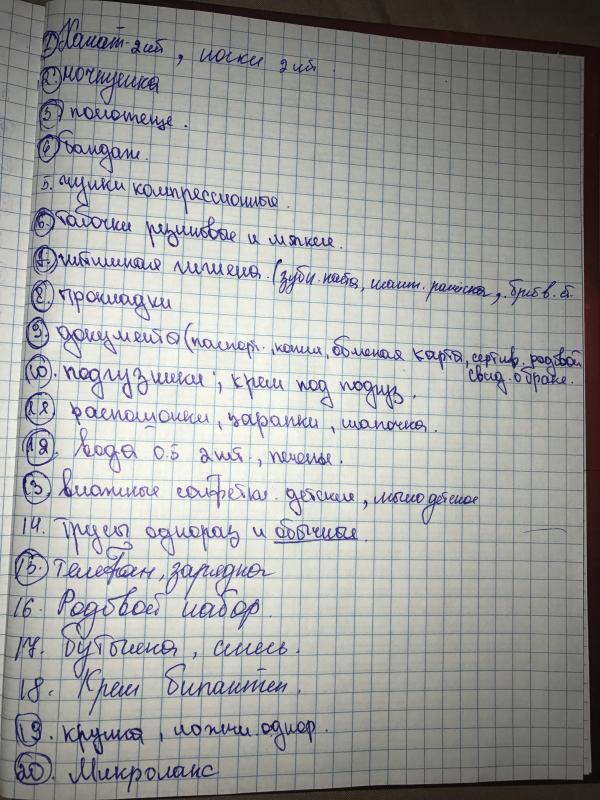 1) Халат 2шт, носки 2шт.
2. ночнушка
3) полотеце.
4. бандаж.
5. чулки компрессионные.
6. тапочки резиновые и мягкие.
7. интимная гигиена. (зубн. паста, шамп. расческа, бритв. ст.
8. прокладки
9. документы (паспорт., копии, обменая карта, сертив. родовой
свид. о браке.
10. подгузники, крем под подгуз.
11. распошонки, царапки, шапочка.
12. вода 0.5 2шт., печенье.
13 влажные салфетки детские, мыло детское
14. Трусы однораз и обычные.
15. телефон, зарядка
16. Родовой набор.
17. бутылка, смесь.
18. Крем бипантен.
19. кружка, ложки однор.
20. Микролакс